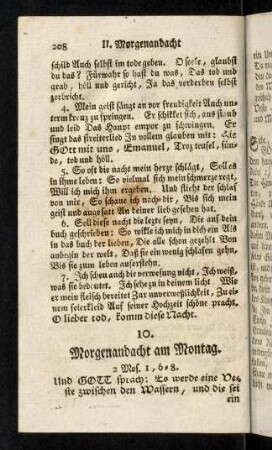 208 II. Morgenandacht
schild Auch selbst im tode geben. O seele, glaubst
du das? Fürwahr so hast du was, Das tod und
grab, höll und gericht, Ja das verderben selbst
zerbricht.
4. Mein geist fängt an vor freudigkeit Auch un-
term kreuz zu springen. Er schicket sich, aus stand
und leid Das Haupt empor zu schwingen. Er
fängt das streiterlied In vollem glauben mit: Hie
GOtt mit uns, Emanuel, Troz teufel, sün-
de, tod und höll.
5. So oft die nacht mein herz schlägt, Soll es
in ihme leben: So vielmal sich mein schmerze regt,
Will ich mich ihm ergeben. Und flieht der schlaf
von mir, So schaue ich nach dir, Bis sich mein
geist und angesicht An deiner lieb gesehen hat.
6. Soll diese nacht die lezte seyn, Die auf dein
buch geschrieben: So wikle ich mich in dich ein Als
in das buch der lieben, Die alle schon gezehlt Von
anbegin der welt, Daß sie ein wenig schlafen gehn,
Bis sie zum leben auferstehn.
7. Ich scheu auch die verwesung nicht, Ich weiß,
was sie bedeutet. Ich sehe zu in deinem licht Wie
er mein fleisch bereitet Zur unverweßlichkeit, Zu ei-
nem feierkleid Auf seiner Hochzeit schöne pracht.
O lieber tod, komm diese Nacht.
10.
Morgenandacht am Montag.
2 Mos. 1, 6=8.
Und GOTT sprach: Es werde eine Ve-
ste zwischen den Wassern, und die sei
ein